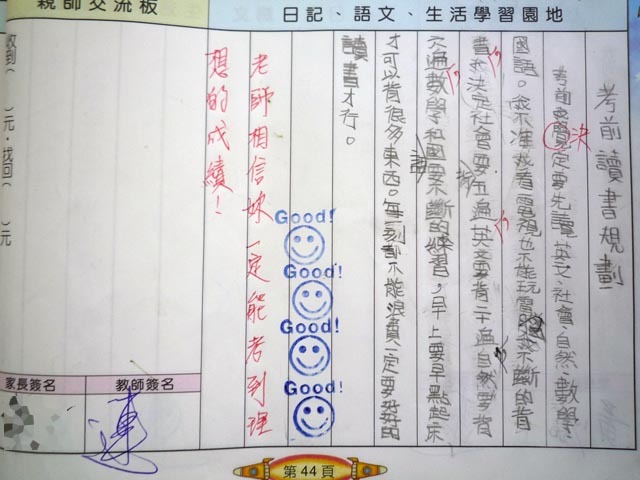 親師交流板
日記、語文、生活學習園地
考前讀書規劃
考前要先讀英文、社會、自然、數學、
決
國語。不准看電視也不能玩電不斷的背
書決定社會要五遍英文要背二十遍自然要背
六遍數學和國要不斷的練習，早上要早點起床
語
才可以背很多東西。每一刻都不能浪費一定要
讀書才行。
老師相信妳一定能考到理
想的成績！
Good!
Good!
Good!
Good!
收到（ ）元．找回（ ）元
家長簽名
教師簽名
連
第44頁